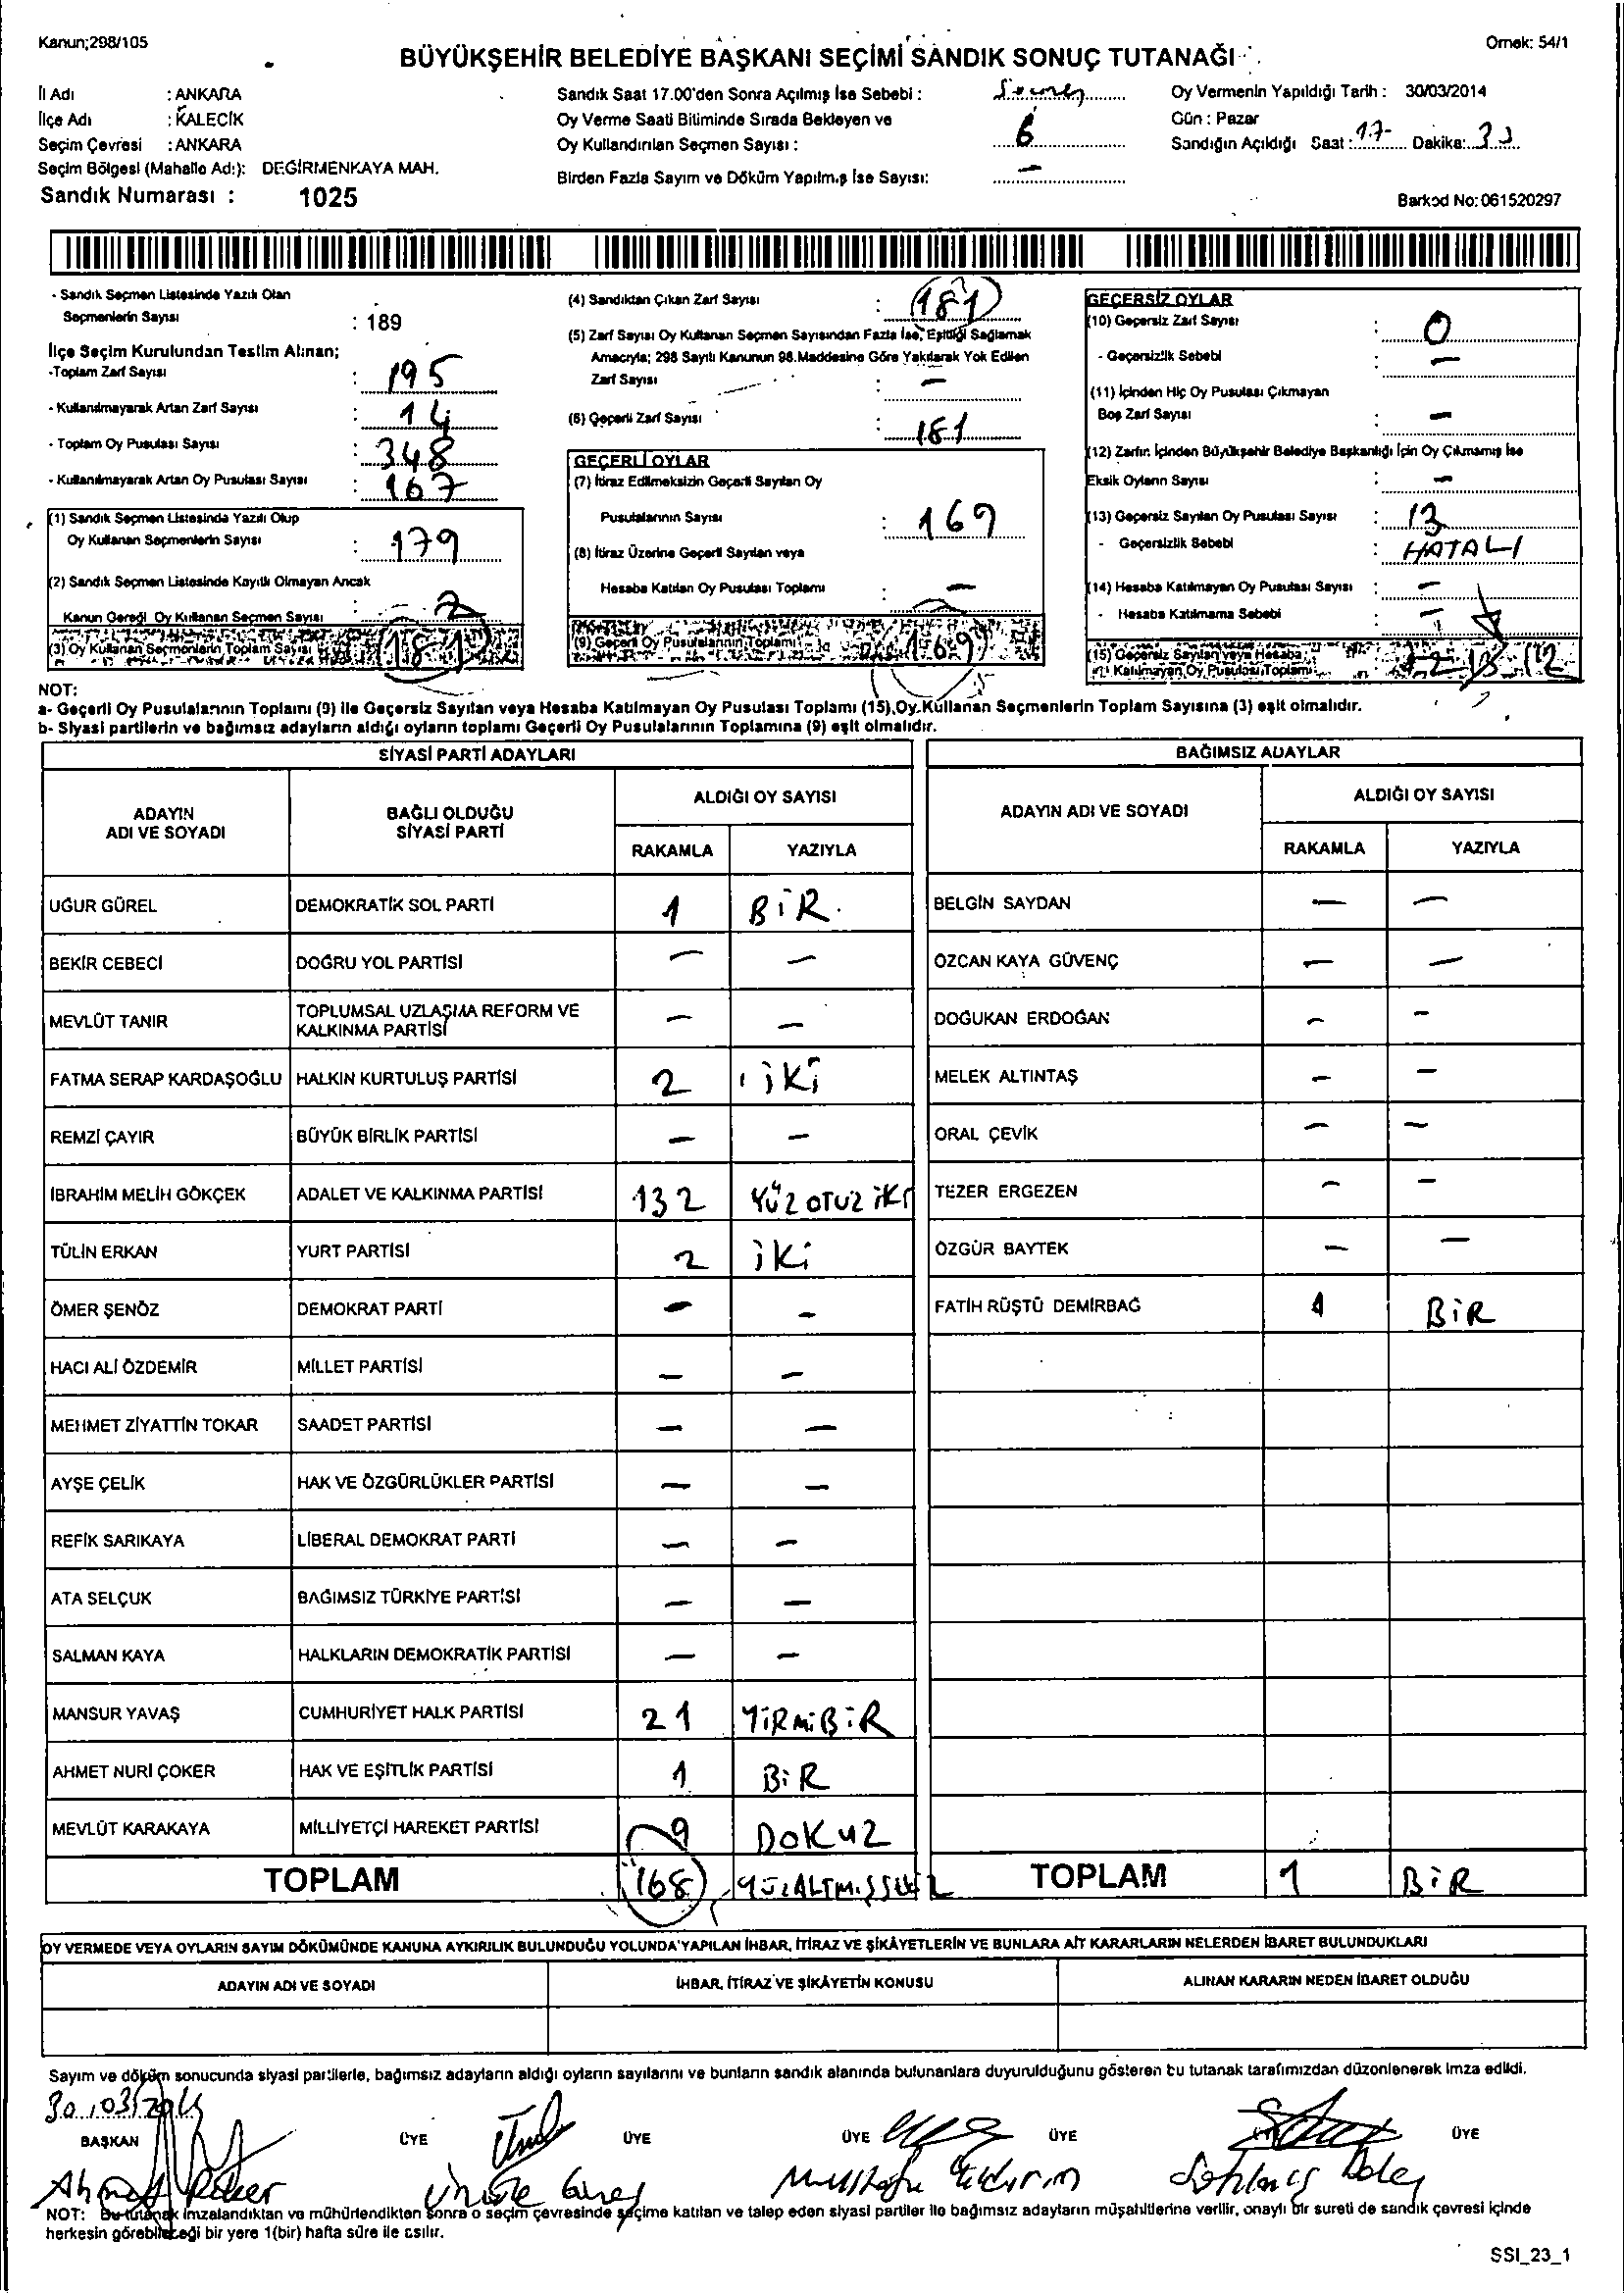 Kanun;298/105
Örnek: 54/1
BÜYÜKŞEHİR BELEDİYE BAŞKANI SEÇİMİ SANDIK SONUÇ TUTANAĞI
İl Adı : ANKARA
İlçe Adı : KALECİK
Seçim Çevresi : ANKARA
Seçim Bölgesi (Mahalle Adı): DEĞİRMENKAYA MAH.
Sandık Numarası : 1025
Sandık Saat 17.00'den Sonra Açılmış İse Sebebi :
Oy Verme Saati Bitiminde Sırada Bekleyen ve
Oy Kullandırılan Seçmen Sayısı : 6
Birden Fazla Sayım ve Döküm Yapılmış İse Sayısı: -
Oy Vermenin Yapıldığı Tarih : 30/03/2014
Gün : Pazar
Sandığın Açıldığı Saat : 17- Dakika:
Barkod No: 061520297
- Sandık Seçmen Listesinde Yazılı Olan
Seçmenlerin Sayısı : 189
İlçe Seçim Kurulundan Teslim Alınan;
-Toplam Zarf Sayısı : 195
- Kullanılmayarak Artan Zarf Sayısı : 14
- Toplam Oy Pusulası Sayısı : 348
- Kullanılmayarak Artan Oy Pusulası Sayısı : 167
(1) Sandık Seçmen Listesinde Yazılı Olup
Oy Kullanan Seçmenlerin Sayısı : 179
(2) Sandık Seçmen Listesinde Kayıtlı Olmayan Ancak
Kanun Gereği Oy Kullanan Seçmen Sayısı : 2
(3) Oy Kullanan Seçmenlerin Toplam Sayısı : 181
(4) Sandıktan Çıkan Zarf Sayısı : 181
(5) Zarf Sayısı Oy Kullanan Seçmen Sayısından Fazla İse, Eşitliği Sağlamak
Amacıyla; 298 Sayılı Kanunun 98.Maddesine Göre Yakılarak Yok Edilen
Zarf Sayısı : -
(6) Geçerli Zarf Sayısı : 181
GEÇERLİ OYLAR
(7) İtiraz Edilmeksizin Geçerli Sayılan Oy
Pusulalarının Sayısı : 169
(8) İtiraz Üzerine Geçerli Sayılan veya
Hesaba Katılan Oy Pusulası Toplamı : -
(9) Geçerli Oy Pusulalarının Toplamı : 169
GEÇERSİZ OYLAR
(10) Geçersiz Zarf Sayısı : 0
- Geçersizlik Sebebi : -
(11) İçinden Hiç Oy Pusulası Çıkmayan
Boş Zarf Sayısı : -
(12) Zarfın İçinden Büyükşehir Belediye Başkanlığı İçin Oy Çıkmamış İse
Eksik Oyların Sayısı : -
(13) Geçersiz Sayılan Oy Pusulası Sayısı : 13
- Geçersizlik Sebebi : HATALI
(14) Hesaba Katılmayan Oy Pusulası Sayısı : -
- Hesaba Katılmama Sebebi : -
(15) Geçersiz Sayılan veya Hesaba
Katılmayan Oy Pusulası Toplamı 12
NOT:
a- Geçerli Oy Pusulalarının Toplamı (9) ile Geçersiz Sayılan veya Hesaba Katılmayan Oy Pusulası Toplamı (15),Oy Kullanan Seçmenlerin Toplam Sayısına (3) eşit olmalıdır.
b- Siyasi partilerin ve bağımsız adayların aldığı oyların toplamı Geçerli Oy Pusulalarının Toplamına (9) eşit olmalıdır.
SİYASİ PARTİ ADAYLARI
ADAYIN ADI VE SOYADI BAĞLI OLDUĞU SİYASİ PARTİ ALDIĞI OY SAYISI
RAKAMLA YAZIYLA
UĞUR GÜREL DEMOKRATİK SOL PARTİ 1 BİR
BEKİR CEBECİ DOĞRU YOL PARTİSİ - -
MEVLÜT TANIR TOPLUMSAL UZLAŞMA REFORM VE KALKINMA PARTİSİ - -
FATMA SERAP KARDAŞOĞLU HALKIN KURTULUŞ PARTİSİ 2 İKİ
REMZİ ÇAYIR BÜYÜK BİRLİK PARTİSİ - -
İBRAHİM MELİH GÖKÇEK ADALET VE KALKINMA PARTİSİ 132 YÜZOTUZ İKİ
TÜLİN ERKAN YURT PARTİSİ 2 İKİ
ÖMER ŞENÖZ DEMOKRAT PARTİ - -
HACI ALİ ÖZDEMİR MİLLET PARTİSİ - -
MEHMET ZİYATTİN TOKAR SAADET PARTİSİ - -
AYŞE ÇELİK HAK VE ÖZGÜRLÜKLER PARTİSİ - -
REFİK SARIKAYA LİBERAL DEMOKRAT PARTİ - -
ATA SELÇUK BAĞIMSIZ TÜRKİYE PARTİSİ - -
SALMAN KAYA HALKLARIN DEMOKRATİK PARTİSİ - -
MANSUR YAVAŞ CUMHURİYET HALK PARTİSİ 21 YİRMİBİR
AHMET NURİ ÇOKER HAK VE EŞİTLİK PARTİSİ 1 BİR
MEVLÜT KARAKAYA MİLLİYETÇİ HAREKET PARTİSİ 9 DOKUZ
TOPLAM 168 YÜZALTMIŞSEKİZ
BAĞIMSIZ ADAYLAR
ADAYIN ADI VE SOYADI ALDIĞI OY SAYISI
RAKAMLA YAZIYLA
BELGİN SAYDAN - -
ÖZCAN KAYA GÜVENÇ - -
DOĞUKAN ERDOĞAN - -
MELEK ALTINTAŞ - -
ORAL ÇEVİK - -
TEZER ERGEZEN - -
ÖZGÜR BAYTEK - -
FATİH RÜŞTÜ DEMİRBAĞ 1 BİR
TOPLAM 1 BİR
OY VERMEDE VEYA OYLARIN SAYIM DÖKÜMÜNDE KANUNA AYKIRILIK BULUNDUĞU YOLUNDA YAPILAN İHBAR, İTİRAZ VE ŞİKÂYETLERİN VE BUNLARA AİT KARARLARIN NELERDEN İBARET BULUNDUKLARI
ADAYIN ADI VE SOYADI İHBAR, İTİRAZ VE ŞİKÂYETİN KONUSU ALINAN KARARIN NEDEN İBARET OLDUĞU
Sayım ve döküm sonucunda siyasi partilerle, bağımsız adayların aldığı oyların sayılarını ve bunların sandık alanında bulunanlara duyurulduğunu gösteren bu tutanak tarafımızdan düzenlenerek imza edildi.
30/03/2014
BAŞKAN ÜYE ÜYE ÜYE ÜYE ÜYE
Mustafa Yıldırım
NOT: Bu tutanak imzalandıktan ve mühürlendikten sonra o seçim çevresinde seçime katılan ve talep eden siyasi partiler ile bağımsız adayların müşahitlerine verilir, onaylı bir sureti de sandık çevresi içinde
herkesin görebileceği bir yere 1(bir) hafta süre ile asılır.
SSI_23_1